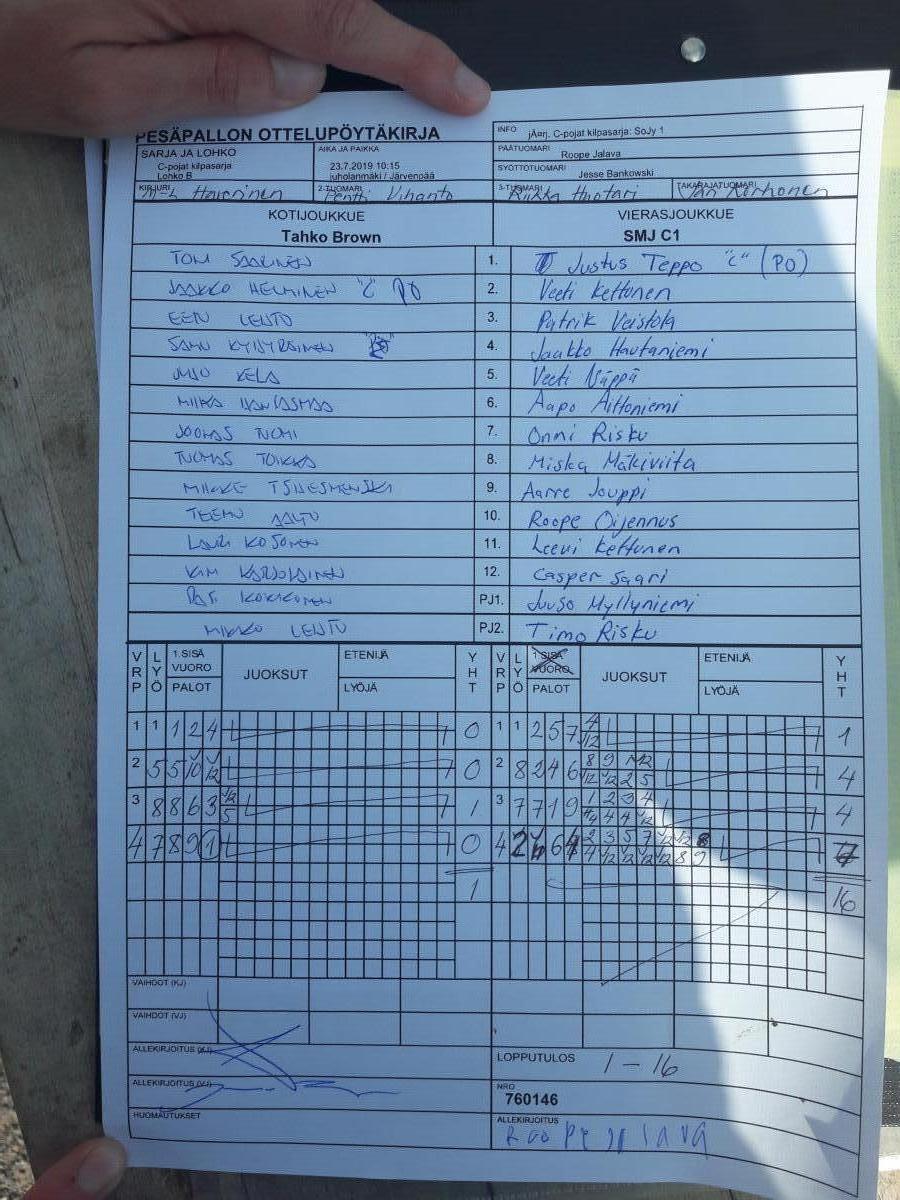 PESÄPALLON OTTELUPÖYTÄKIRJA
INFO jÄarj. C-pojat kilpasarja: SoJy 1
SARJA JA LOHKO
C-pojat kilpasarja
Lohko B
AIKA JA PAIKKA
23.7.2019 10:15
juholanmäki / Järvenpää
PÄÄTUOMARI Roope Jalava
SYÖTTÖTUOMARI Jesse Bankowski
KIRJURI
2-TUOMARI Pentti Vihanto
3-TUOMARI Riikka Huotari
TAKARAJATUOMARI Jari Korhonen
KOTIJOUKKUE VIERASJOUKKUE
Tahko Brown SMJ C1
TOMI SAARINEN 1. Justus Teppo "C" (PO)
JAAKKO HELMINEN "C" PO 2. Veeti Kettunen
EETU LEHTO 3. Patrik Veistola
4. Jaakko Hautaniemi
KELA 5. Veeti Näppä
MIIKA 6. Aapo Aittoniemi
JOONAS TUOMI 7. Onni Risku
TUOMAS TOIKKA 8. Miska Mäkiviita
9. Aarre Jouppi
TEEMU AALTO 10. Roope Oijennus
LAURI KOSONEN 11. Leevi Kettunen
KIM KARJOLAINEN 12. Casper Saari
PJ1. Juuso Myllyniemi
MIKKO LEHTO PJ2. Timo Risku
VRP LYÖ 1.SISÄ VUORO PALOT JUOKSUT ETENIJÄ LYÖJÄ YHT VRP LYÖ 1.SISÄ VUORO PALOT JUOKSUT ETENIJÄ LYÖJÄ YHT
1 1 1 2 4 0 1 1 2 5 7 4/12 1
2 5 5 10 0 2 8 2 4 6 4
3 8 8 6 3 1 3 7 7 1 9 4
4 7 8 9 1 0 4 7
1 16
VAIHDOT (KJ)
VAIHDOT (VJ)
ALLEKIRJOITUS (KJ)
LOPPUTULOS 1 - 16
ALLEKIRJOITUS (VJ)
NRO
760146
HUOMAUTUKSET
ALLEKIRJOITUS
Roope Jalava